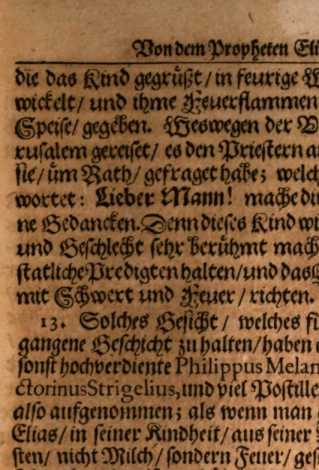 Von dem Propheten Eli
die das Kind gegrüßt / in feurige W
wickelt / und ihme Feuerflammen
Speise / gegeben. Weswegen der V
rusalem gereiset / es den Priestern a
sie / üm Rath / gefraget habe; welch
wortet: Lieber Mann! mache di
ne Gedancken. Denn dieses Kind wi
und Geschlecht sehr berühmt mach
statliche Predigten halten / und das
mit Schwert und Feuer / richten.
13. Solches Gesicht / welches fü
gangene Geschicht zu halten / haben
sonst hochverdiente Philippus Melan
ctorinus Strigelius, und viel Postille
also aufgenommen; als wenn man
Elias / in seiner Kindheit / aus seiner
sten / nicht Milch / sondern Feuer / ges